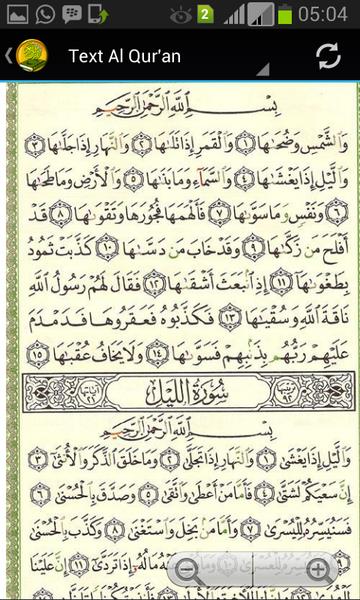 2 05:04
Text Al Qur'an
بِسْمِ اللَّهِ الرَّحْمَٰنِ الرَّحِيمِ
وَالشَّمْسِ وَضُحَىٰهَا ١ وَالْقَمَرِ إِذَا تَلَىٰهَا ٢ وَالنَّهَارِ إِذَا جَلَّىٰهَا ٣
وَاللَّيْلِ إِذَا يَغْشَىٰهَا ٤ وَالسَّمَاءِ وَمَا بَنَىٰهَا ٥ وَالْأَرْضِ وَمَا طَحَىٰهَا
٦ وَنَفْسٍ وَمَا سَوَّىٰهَا ٧ فَأَلْهَمَهَا فُجُورَهَا وَتَقْوَىٰهَا ٨ قَدْ
أَفْلَحَ مَن زَكَّىٰهَا ٩ وَقَدْ خَابَ مَن دَسَّىٰهَا ١٠ كَذَّبَتْ ثَمُودُ
بِطَغْوَىٰهَا ١١ إِذِ انبَعَثَ أَشْقَىٰهَا ١٢ فَقَالَ لَهُمْ رَسُولُ اللَّهِ
نَاقَةَ اللَّهِ وَسُقْيَـٰهَا ١٣ فَكَذَّبُوهُ فَعَقَرُوهَا فَدَمْدَمَ
عَلَيْهِمْ رَبُّهُم بِذَنبِهِمْ فَسَوَّىٰهَا ١٤ وَلَا يَخَافُ عُقْبَـٰهَا ١٥
ترتيبها ٩٢ سُورَةُ اللَّيْلِ آياتها ٢١
بِسْمِ اللَّهِ الرَّحْمَٰنِ الرَّحِيمِ
وَاللَّيْلِ إِذَا يَغْشَىٰ ١ وَالنَّهَارِ إِذَا تَجَلَّىٰ ٢ وَمَا خَلَقَ الذَّكَرَ وَالْأُنثَىٰ ٣
إِنَّ سَعْيَكُمْ لَشَتَّىٰ ٤ فَأَمَّا مَنْ أَعْطَىٰ وَاتَّقَىٰ ٥ وَصَدَّقَ بِالْحُسْنَىٰ ٦
فَسَنُيَسِّرُهُ لِلْيُسْرَىٰ ٧ وَأَمَّا مَن بَخِلَ وَاسْتَغْنَىٰ ٨ وَكَذَّبَ بِالْحُسْنَىٰ
٩ فَسَنُيَسِّرُهُ لِلْعُسْرَىٰ ١٠ وَمَا يُغْنِي عَنْهُ مَالُهُ إِذَا تَرَدَّىٰ ١١ إِنَّ عَلَيْنَا